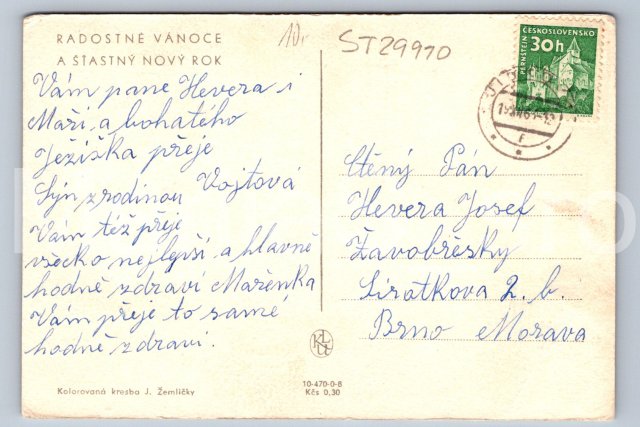 RADOSTNÉ VÁNOCE
A ŠŤASTNÝ NOVÝ ROK
Vám pane Hevera i
Maři a bohatého
Ježíška přeje
Syn z rodinou Vojtová
Vám též přeje
všecko nejlepší a hlavně
hodně zdraví Mařenka
Vám přeje to samé
hodně zdraví.
Kolorovaná kresba J. Žemličky
10-470-0-8
Kčs 0,30
10.-
ST29970
ČESKOSLOVENSKO
30h
PERNŠTEJN
Ctěný Pán
Hevera Josef
Žavobřesky
Sirotkova 2. b.
Brno Morava